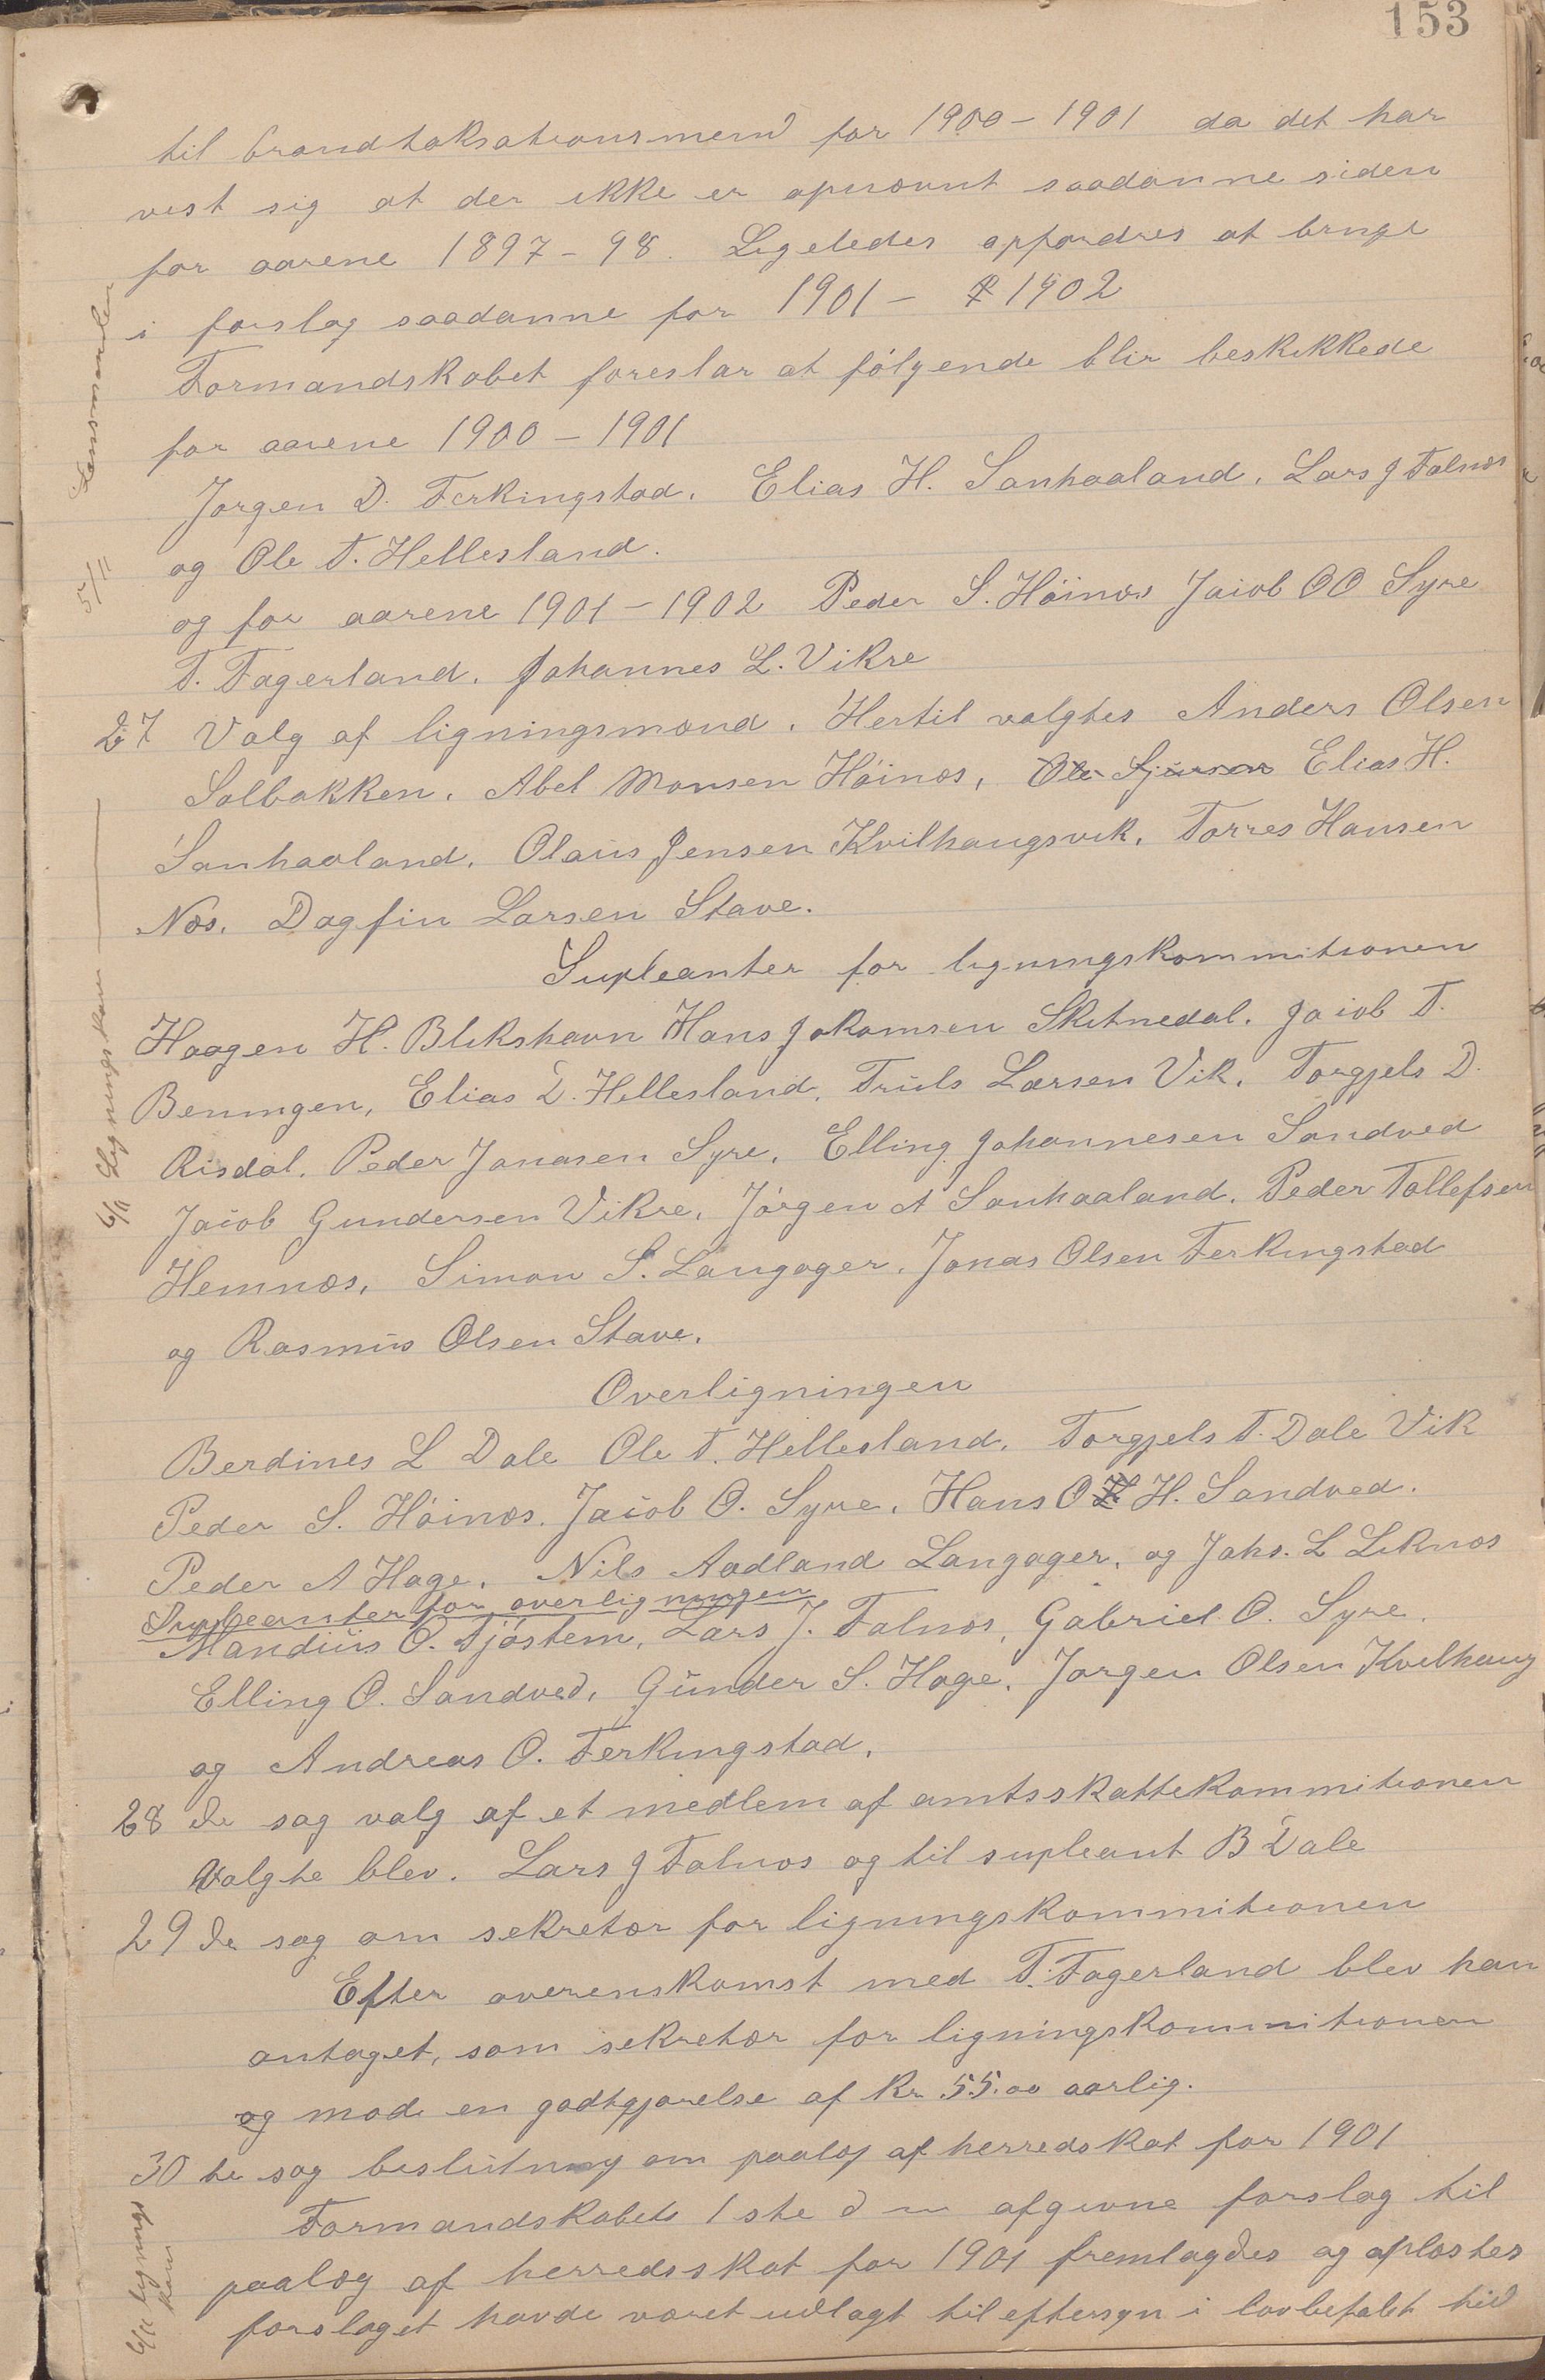 153
til brandtaksationsmend for 1900 - 1901 da det har
vist sig at der ikke er opnævnt saadanne siden
for aarene 1897 - 98. Ligeledes opfordres at bringe
i forslag saadanne for 1901 - 1902
Formandskabet foreslar at følgende blir beskikkede
for aarene 1900 - 1901
Jørgen D. Ferkingstad, Elias H. Sanhaaland, Lars J Falnæs
og Ole T. Hellesland.
og for aarene 1901 - 1902 Peder S. Höinæs Jacob OO Syre
T. Fagerland, Johannes L. Vikre
27 Valg af ligningsmænd. Hertil valgtes Anders Olsen
Solbakken, Abel Monsen Höinæs, Ole Sjursen Elias H.
Sanhaaland, Olaus Jensen Kvilhaugsvik, Torres Hansen
Næs, Dagfin Larsen Stave.
Supleanter for ligningskommitionen
Haagen H. Blikshavn Hans Jakomsen Skitnedal, Jacob T.
Beningen, Elias D. Hellesland, Truls Larsen Vik, Torgjels D.
Risdal, Peder Jonasen Syre, Elling Johannesen Sandved
Jacob Gundersen Vikre, Jörgen A Sanhaaland, Peder Tollefsen
Hemnæs, Simon S. Langager, Jonas Olsen Ferkingstad
og Rasmus Olsen Stave.
Overligningen
Berdines L Dale Ole T. Hellesland, Torgjels T. Dale Vik
Peder S. Höinæs, Jacob O. Syre, Hans O H. Sandved.
Peder A Hage, Nils Aadland Langager, og Johs. L Liknæs
Supleanter for overligningen
Mandius O. Tjöstem, Lars J. Falnæs, Gabriel O. Syre,
Elling O. Sandved, Gunder S. Hage, Jørgen Olsen Kvilhaug
og Andreas O. Ferkingstad,
28 de sag valg af et medlem af amtsskattekommitionen
Valgte blev. Lars J Falnæs og til supleant B Dale
29 de sag om sekretær for ligningskommitionen
Efter overenskomst med T. Fagerland blev han
antaget, som sekretær for ligningskommitionen
og mod en godtgjørelse af kr 55.00 aarlig.
30 te sag beslutning om paalæg af herredskat for 1901
Formandskabets 1ste d m afgivne forslag til
paalæg af herredsskat for 1901 fremlagdes og oplæstes
forslaget havde været udlagt til eftersyn i lovbefalet tid
5/11 Lensmanden
6/11 Lignings kom
6/11 Lignings kom